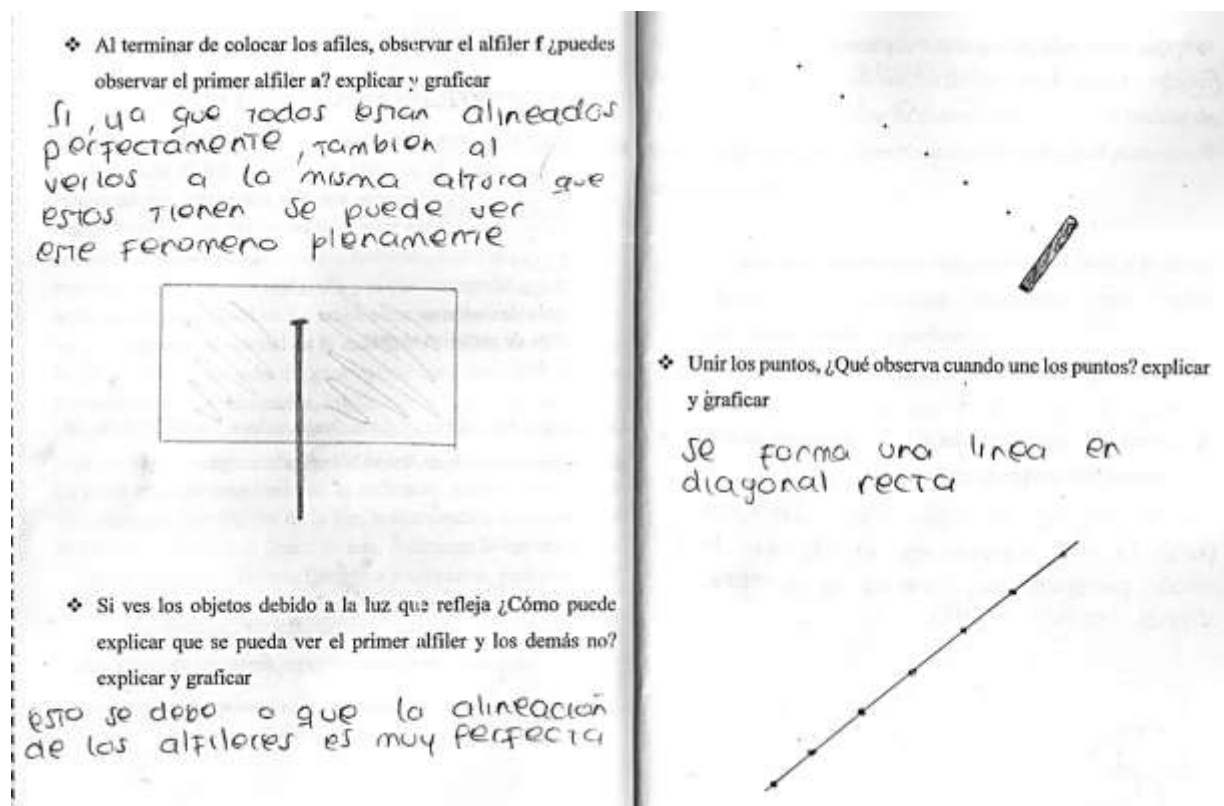 ❖ Al terminar de colocar los afiles, observar el alfiler f ¿puedes
observar el primer alfiler a? explicar y graficar
Si, ya que todos estan alineados
perfectamente, tambien al
verlos a la misma altura que
estos tienen se puede ver
este fenomeno plenamente
❖ Si ves los objetos debido a la luz que refleja ¿Cómo puede
explicar que se pueda ver el primer alfiler y los demás no?
explicar y graficar
esto se debe a que la alineación
de los alfileres es muy perfecta
❖ Unir los puntos, ¿Qué observa cuando une los puntos? explicar
y graficar
se forma una linea en
diagonal recta